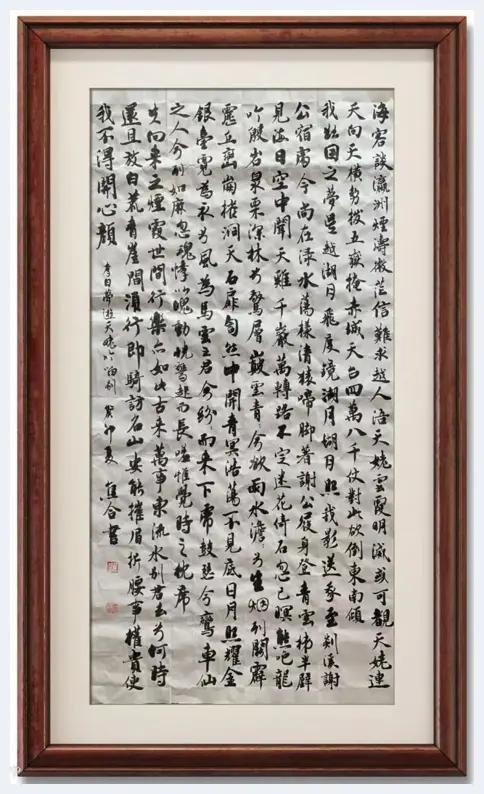 海客談瀛洲煙濤微茫信難求越人語天姥雲霞明滅或可覩天姥連
天向天橫勢拔五嶽掩赤城天台四萬八千仗對此欲倒東南傾
我欲因之夢吳越湖月飛度鏡湖月湖月照我影送我至剡溪謝
公宿處今尚在淥水蕩樣清猿啼脚著謝公屐身登青雲梯半壁
見海日空中聞天雞千巖萬轉路不定迷花倚石忽已暝熊咆龍
吟殷岩泉栗深林兮驚層巔雲青兮欲雨水澹兮生煙列闕霹
靂丘巒崩摧洞天石扉訇然中開青冥浩蕩不見底日月照耀金
銀臺霓為衣兮風為馬雲之君兮紛而來下虎鼓瑟兮鸞車仙
之人兮列如麻忽魂悸以魄動恍驚起而長嗟惟覺時之枕席
失向來之煙霞世間行樂亦如此古來萬事東流水別君去兮何時
還且放白鹿青崖間須行即騎訪名山安能摧眉折腰事權貴使
我不得開心顏
李白夢遊天姥吟留別 癸卯夏 書